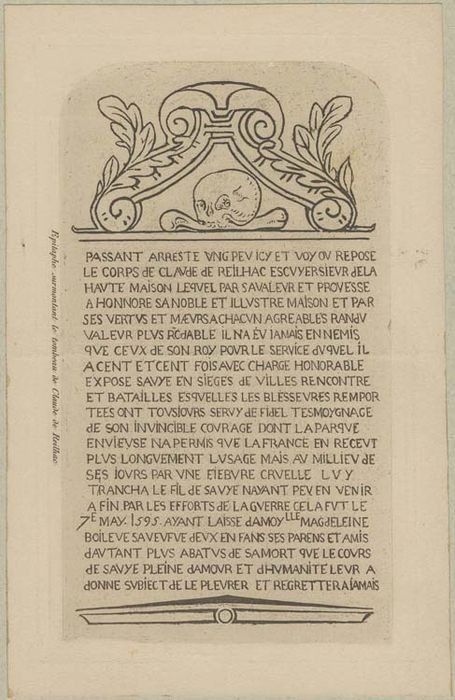 PASSANT ARRESTE VNG PEV ICY ET VOY OV REPOSE
LE CORPS DE CLAVDE DE REILHAC ESCVYER SIEVR DELA
HAVTE MAISON LEQVEL PAR SAVALEVR ET PROVESSE
A HONNORE SA NOBLE ET ILLVSTRE MAISON ET PAR
SES VERTVS ET MŒVRS A CHACVN AGREABLES RANDV
VALEVR PLVS RCDABLE IL NA EV IAMAIS ENNEMIS
QVE CEVX DE SON ROY POVR LE SERVICE DVQVEL IL
A CENT ET CENT FOIS AVEC CHARGE HONORABLE
EXPOSE SAVYE EN SIEGES DE VILLES RENCONTRE
ET BATAILLES ESQVELLES LES BLESSEVRES REMPOR
TEES ONT TOVSIOVRS SERVY DE FIDEL TESMOYGNAGE
DE SON INVINCIBLE COVRAGE DONT LA PARQVE
ENVIEVSE NA PERMIS QVE LA FRANCE EN RECEVT
PLVS LONGVEMENT LVSAGE MAIS AV MILLIEV DE
SES IOVRS PAR VNE FIEBVRE CRVELLE LVY
TRANCHA LE FIL DE SAVYE NAYANT PEV EN VENIR
A FIN PAR LES EFFORTS DE LA GVERRE CELA FVT LE
7E MAY. 1595. AYANT LAISSE DAMOYLLE MAGDELEINE
BOILEVE SA VEFVE DEVX EN FANS SES PARENS ET AMIS
DAVTANT PLVS ABATVS DE SA MORT QVE LE COVRS
DE SAVYE PLEINE DAMOVR ET DHVMANITE LEVR A
DONNE SVBIECT DE LE PLEVRER ET REGRETTER A IAMAIS
Epitaphe surmontant le tombeau de Claude de Reilhac